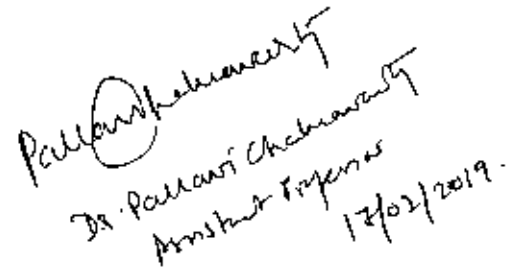 Pallavi Chakravarty
Dr. Pallavi Chakravarty
Assistant Professor
17/02/2019.